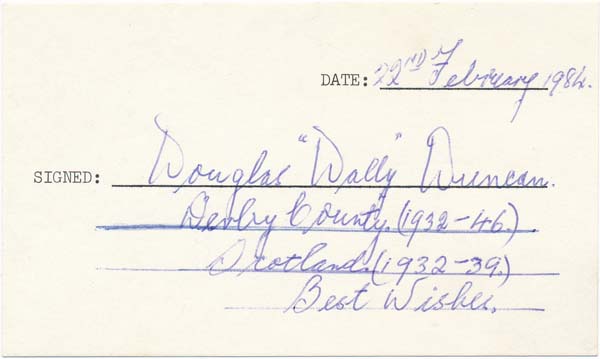 DATE: 22ND February 1984.
SIGNED: Douglas "Dally" Duncan.
Derby County. (1932-46.)
Scotland. (1932-39.)
Best Wishes.